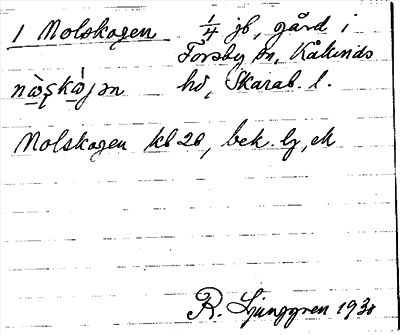 1 Nolskogen 1/4 jb, gård i
Forsby sn, Kåkinds
hd, Skarab. l.
Nolskogen kb 28, bek. lj, ek
R. Ljunggren 1930